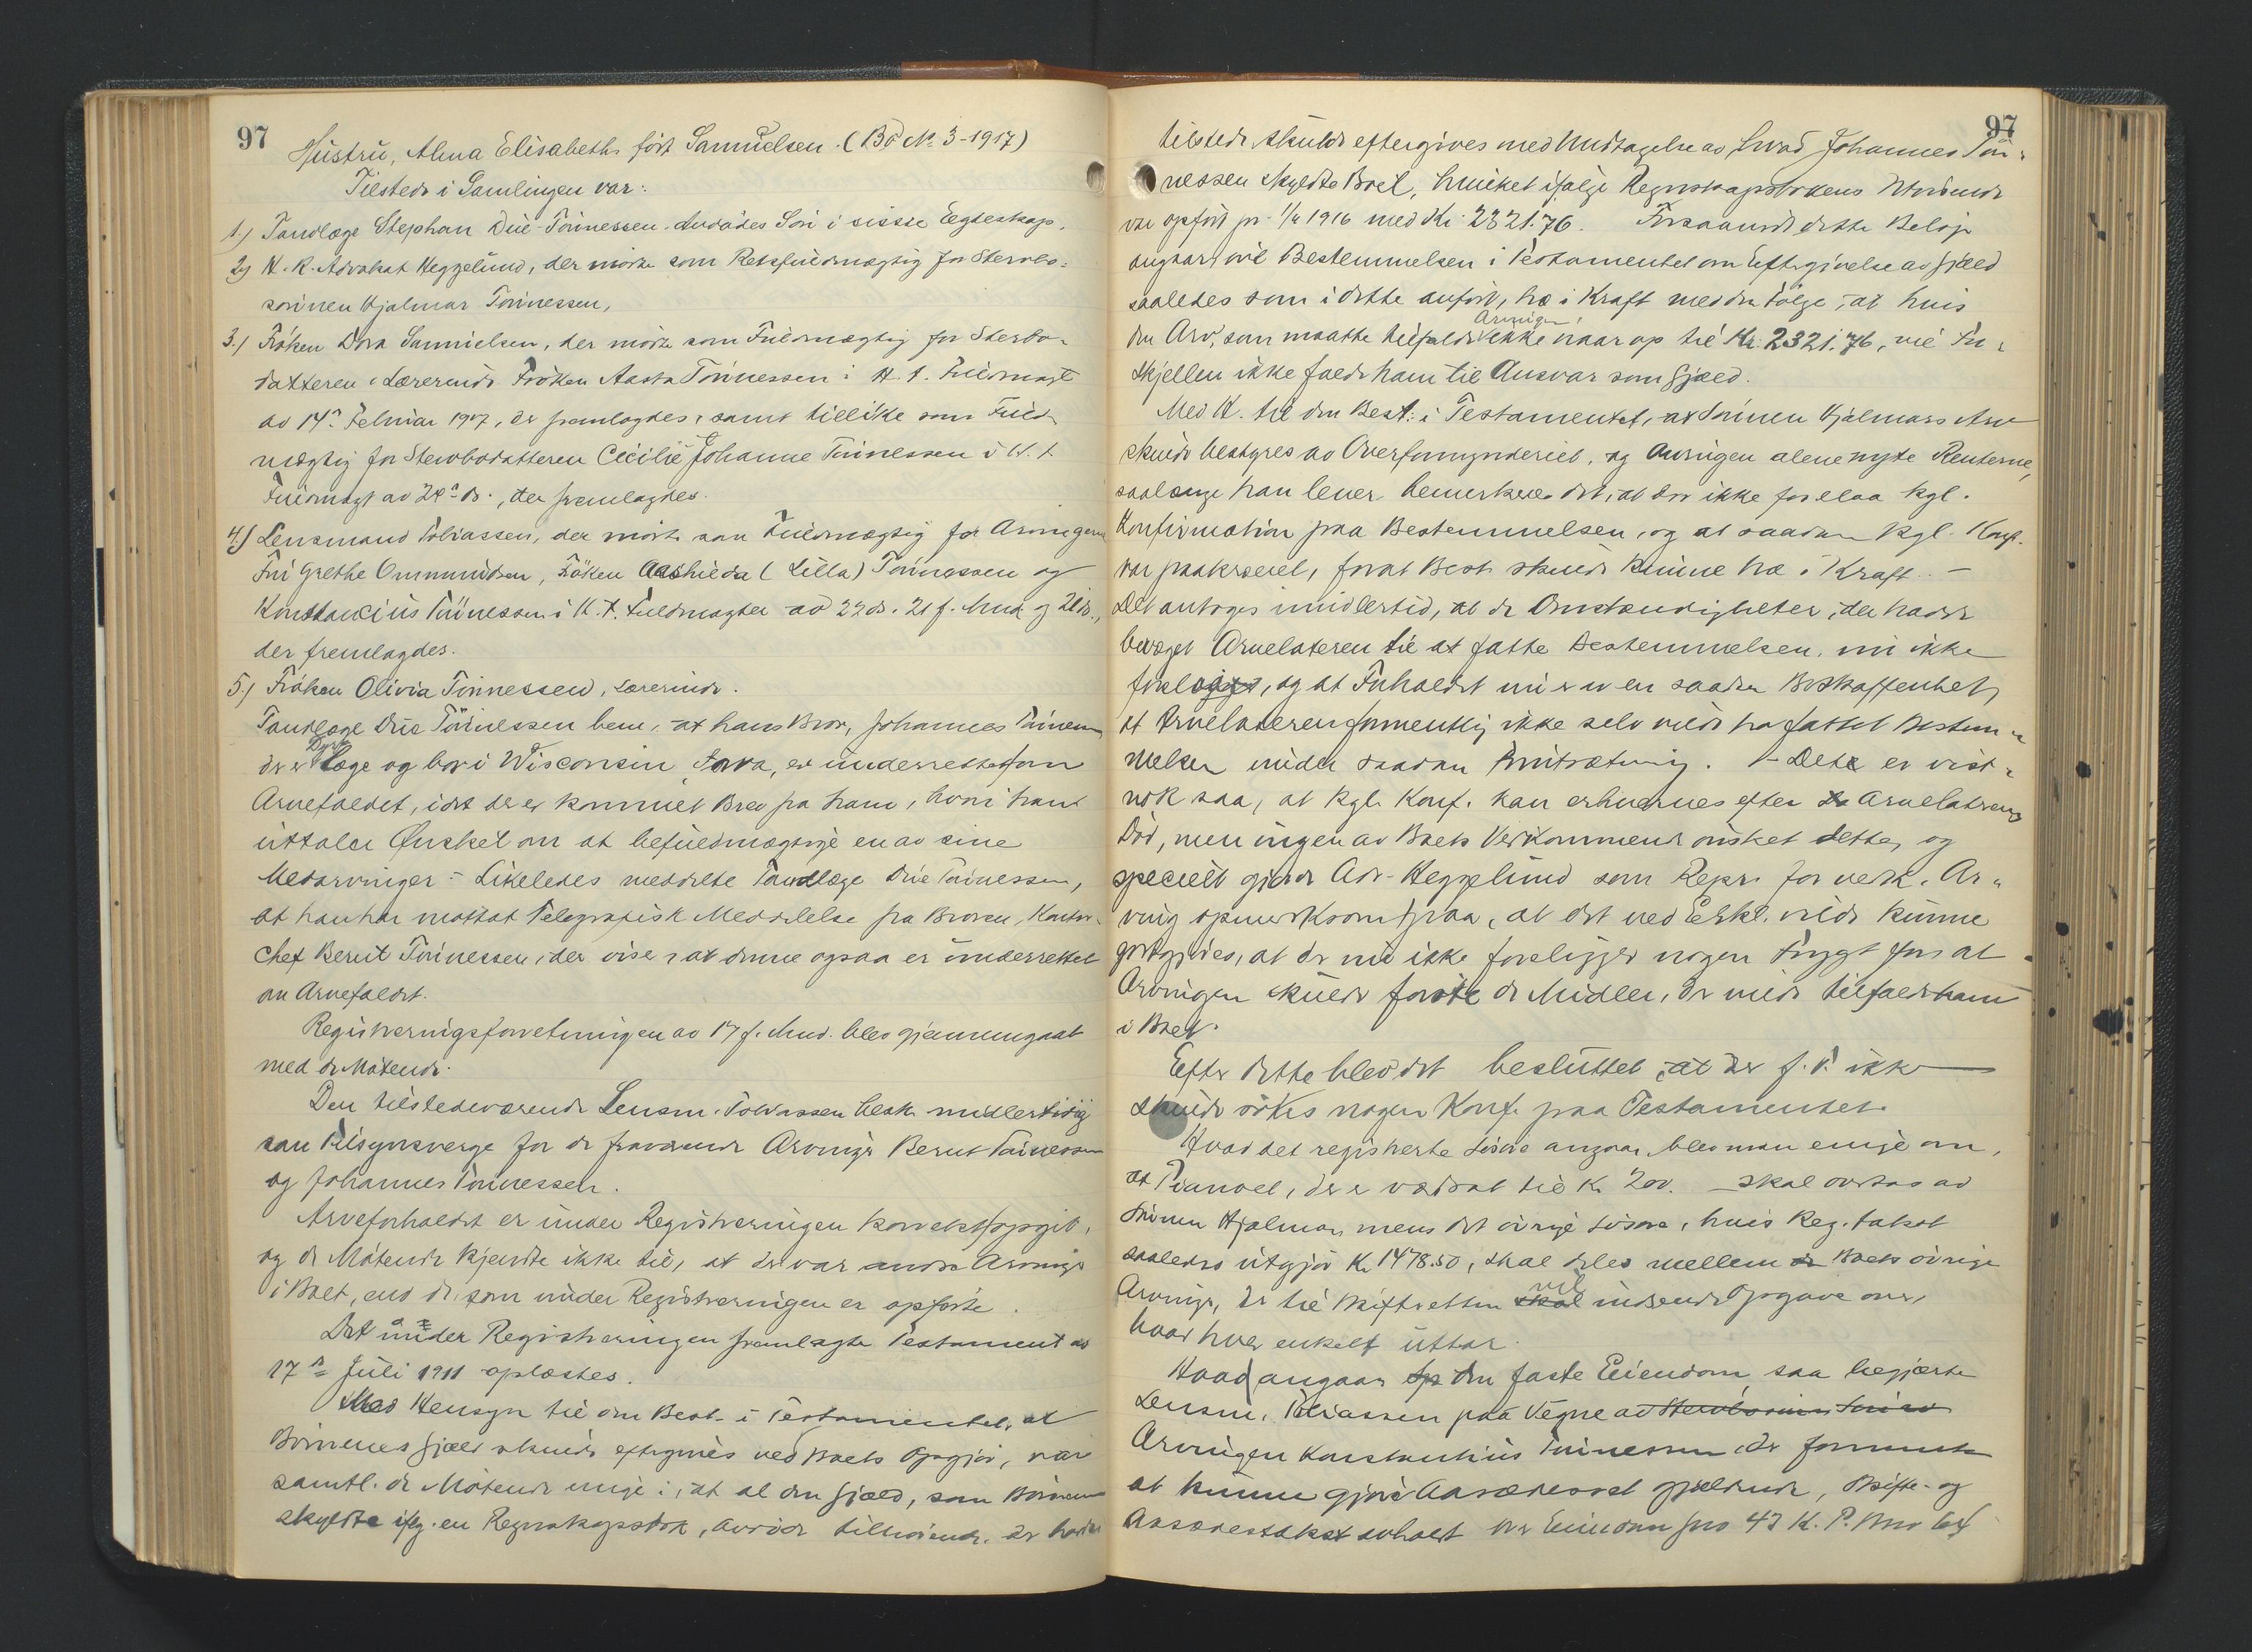 97
Hustru, Alma Elisabeth født Samuelsen. (Bo No 3-1917)
Tilstede i Samlingen var:
1.) Tandlæge Stephan Due-Tönnessen. Avdødes Sön i sisste Egteskap,
2) H.R. Advokat Heggelund, der mötte som Retsfuldmægtig for Stervbo-
sönnen Hjalmar Tönnessen,
3.) Fröken Dora Samuelsen, der mötte som Fuldmægtig for Stervbo-
datteren Lærerinde Fröken Aasta Tönnessen i H. t. Fuldmagt
av 14de Februar 1917, der fremlagdes, samt tillike som Fuld-
mægtig for Stervbodatteren Cecilie Johanne Tönnessen i H. t.
Fuldmagt av 24de ds., der fremlagdes.
4.) Lensmand Tobiassen, der mötte som Fuldmægtig for Arvingerne
Fru Grethe Ommundsen, Fröken Aashilda (Lilla) Tönnessen og
Konstancius Tönnessen i H. t. Fuldmagter av 22 ds. 21 f. Mnd. og 21 ds.,
der fremlagdes.
5.) Fröken Olivia Tönnessen, Lærerinde.
Tandlæge Due Tönnessen bem. at hans Bror, Johannes Tönnessen
der er Dyrlæge og bor i Wisconsin Iowa, er underrettet om
Arvefaldet, idet der er kommet Brev fra ham, hvori han
uttaler Ønsket om at befuldmægtige en av sine
Medarvinger - Likeledes meddelte Tandlæge Due Tönnessen,
at han har mottat Telegrafisk Meddelelse fra Broren, Kontor-
chef Berent Tönnessen, der viser, at denne ogsaa er underrettet
om Arvefaldet.
Registreringsforretningen av 17 f. Mnd. blev gjennemgaat
med de Mötende.
Den tilstedeværende Lensm. Tobiassen besk. midlertidig
som Tilsynsverge for de fraværende Arvinger Berent Tönnessen
og Johannes Tönnessen.
Arveforholdet er under Registreringen korrekt opgit,
og de Mötende kjendte ikke til, at der var andre Arvinger
i Boet, end de, som under Registreringen er opförte.
Det under Registreringen fremlagte Testament av
17de Juli 1911 oplæstes.
Med Hensyn til den Best. i Testamentet, at
Börnenes Gjæld skulde eftergives ved Boets Opgjör, var
samtl. de Mötende enige i, at al den Gjæld, som Börnene
skyldte iflg. en Regnskapsbok, Avdöde tilhörende, der havdes
97
tilstede, skulde eftergives med Undtagelse av, hvad Johannes Tön-
nessen skyldte Boet, hvilket ifölge Regnskapsbokens Utvisende
var opfört pr. 1/4 1916 med Kr. 2321.76. Forsaavidt dette Belöp
angaar, vil Bestemmelsen i Testamentet om Eftergivelse av Gjæld
saaledes som i dette anfört, træ i Kraft med den Fölge, at hvis
den Arv, som maatte tilfalde Arvingen, ikke naar op til Kr. 2321.76, vil For-
skjellen ikke falde ham til Ansvar som Gjæld.
Med H. til den Best: i Testamentet, at Sönnen Hjalmars Arv
skulde bestyres av Overformynderiet, og Arvingen alene nyte Renterne,
saalænge han lever bemerkedes det, at der ikke forelaa kgl.
Konfirmation paa Bestemmelsen, og at saadan kgl. Konf.
var paakrævet, forat Best. skulde kunne træ i Kraft. -
Det antoges imidlertid, at de Omstændigheter, der hadde
bevæget Arvelateren til at fatte Bestemmelsen, nu ikke
forelaa, og at Forholdet nu er av en saadan Beskaffenhet,
at Arvelateren formentlig ikke selv vilde ha fattet Bestem-
melsen under saadan Forutsætning. - Det er vist-
nok saa, at kgl. Konf. kan erhverves efter Arvelaterens
Död, men ingen av Boets Vedkommende önsket dette, og
specielt gjorde Adv. Heggelund som Repr. for vedk. Ar-
ving opmerksom paa, at det ved Erkl. vilde kunne
godtgjöres, at der nu ikke foreligger nogen Frygt for at
Arvingen skulde foröde de Midler, der vilde tilfalde ham
i Boet.
Efter dette blev det besluttet, at der f. T. ikke
skulde sökes nogen Konf. paa Testamentet.
Hvad det registrerte Lösöre angaar, blev man enige om,
at Pianoet, der er værdsat til Kr. 200. - skal overtas av
Sönnen Hjalmar, mens det övrige Lösöre, hvis Reg. takst
saaledes utgjör Kr. 1478.50, skal deles mellem Boets övrige
Arvinger, der til Skifteretten vil indsende Opgave over,
hvad hver enkelt uttar.
Hvad angaar den faste Eiendom, saa begjærte
Lensm. Tobiassen paa Vegne av
Arvingen Konstantius Tönnessen, der formente
at kunne gjöre Aasædesret gjældende, Skifte- og
Aasædestakst avholdt over Eiendommen Gno 43 K. P. Bno 64